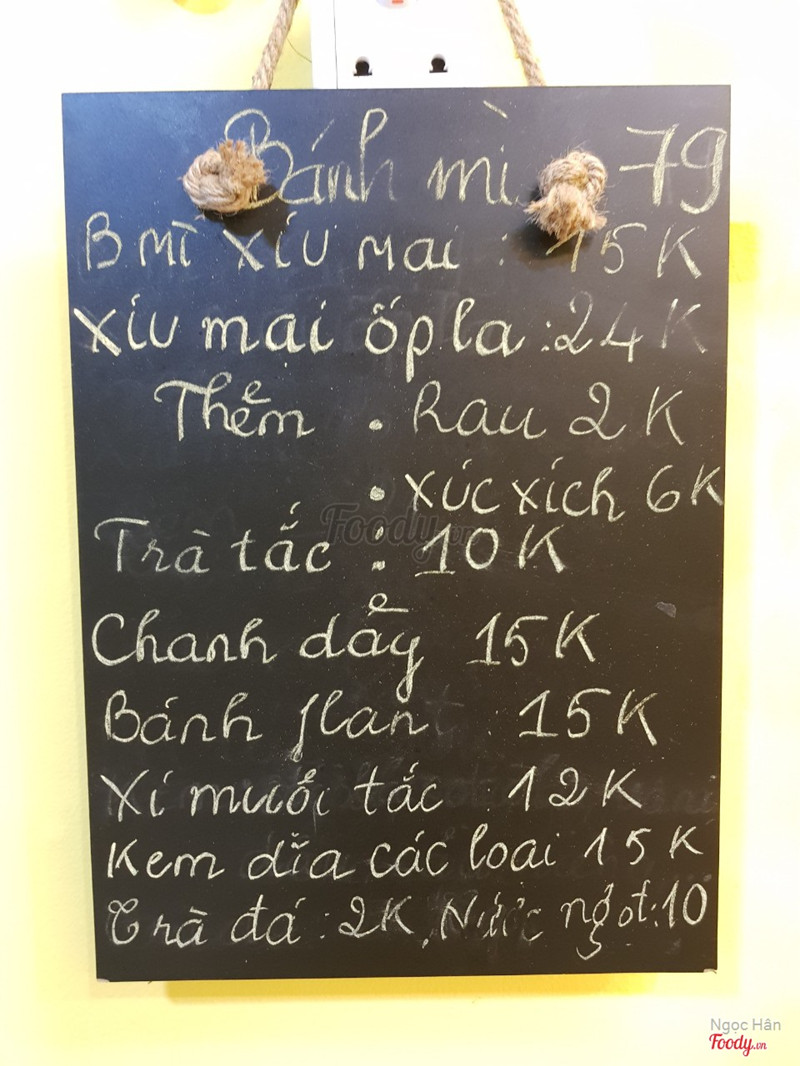 Bánh mì 79
B mì xíu mại : 15K
Xíu mại ốpla : 24K
Thêm • Rau 2K
• xúc xích 6K
Trà tắc : 10K
Chanh dây 15K
Bánh flant : 15K
Xí muối tắc : 12K
Kem dĩa các loại 15K
Trà đá : 2K, Nước ngọt : 10
Foody.vn
Ngọc Hân
Foody.vn